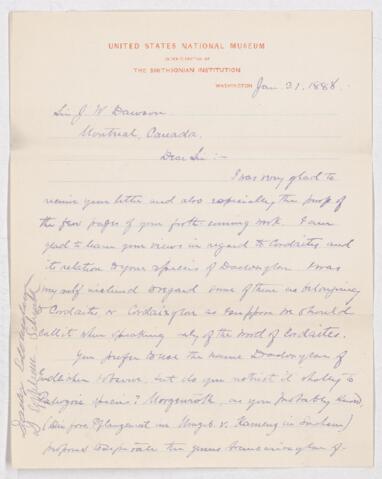 UNITED STATES NATIONAL MUSEUM
UNDER DIRECTION OF
THE SMITHSONIAN INSTITUTION
WASHINGTON Jan. 21. 1888.
Sir J. W. Dawson
Montreal, Canada.
Dear Sir:-
I was very glad to
receive your letter and also especially the proof of
the few pages of your forth coming work. I am
glad to learn your views in regard to Cordaites and
its relation to your species of Dadoxylon. I was
my self inclined to regard some of them as belonging
to Cordaites, or Cordaioxylon as I suppose we should
call it when speaking only of the wood of Cordaites.
You prefer to use the name Dadoxylon of
Endlicher however, but do you restrict it wholly to
Paleozoic species? Morgenroth, as you probably know,
(Die foss. Pflanzenreste im v. Kamenz in Sachsen)
proposed to separate the genus Araucarioxylon of